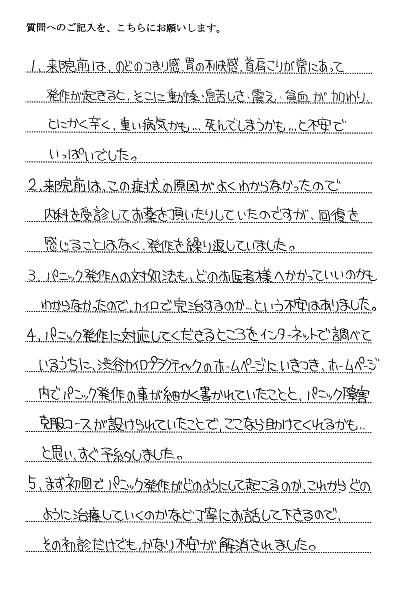 質問へのご記入を、こちらにお願いします。
1、来院前は、のどのつまり感、胃の不快感、首肩こりが常にあって
発作が起きると、そこに動悸・息苦しさ・震え・貧血が加わり、
とにかく辛く、重い病気かも…死んでしまうかも…と不安で
いっぱいでした。
2、来院前は、この症状の原因がよくわからなかったので
内科を受診してお薬を頂いたりしていたのですが、回復を
感じることはなく、発作を繰り返していました。
3、パニック発作への対処法も、どのお医者様へかかっていいのかも
わからなかったので、カイロで完治するのか…という不安はありました。
4、パニック発作に対応してくださるところをインターネットで調べて
いるうちに、渋谷カイロプラクティックのホームページにいきつき、ホームページ
内でパニック発作の事が細かく書かれていたことと、パニック障害
克服コースが設けられていたことで、ここなら助けてくれるかも…
と思い、すぐ予約しました。
5、まず初回でパニック発作がどのようにして起こるのか、これからどの
ように治療していくのかなど丁寧にお話して下さるので、
その初診だけでも、かなり不安が解消されました。